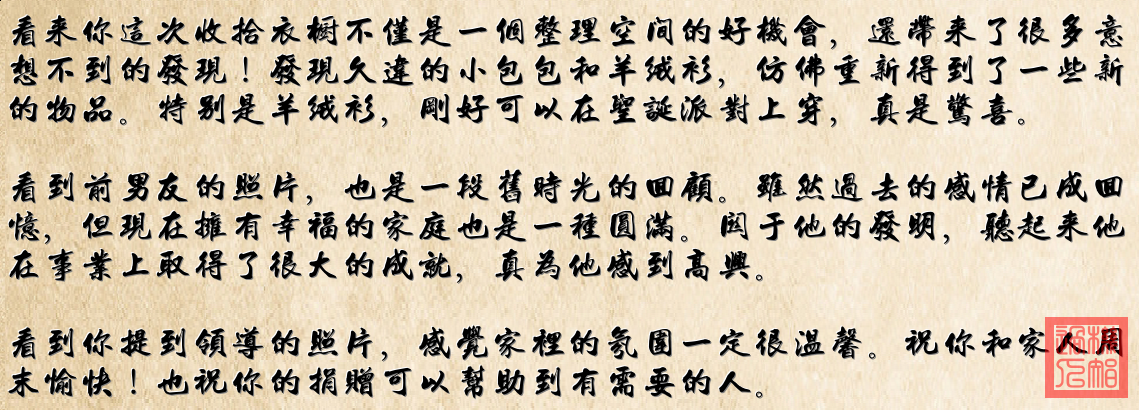 看来你這次收拾衣橱不僅是一個整理空间的好機會，還帶来了很多意
想不到的發現！發現久違的小包包和羊绒衫，仿佛重新得到了一些新
的物品。特别是羊绒衫，剛好可以在聖誕派對上穿，真是驚喜。
看到前男友的照片，也是一段舊時光的回顧。雖然過去的感情已成回
憶，但現在擁有幸福的家庭也是一種圓滿。関于他的發明，聽起来他
在事業上取得了很大的成就，真為他感到高興。
看到你提到領導的照片，感覺家裡的氛圍一定很温馨。祝你和家人周
末愉快！也祝你的捐贈可以幫助到有需要的人。